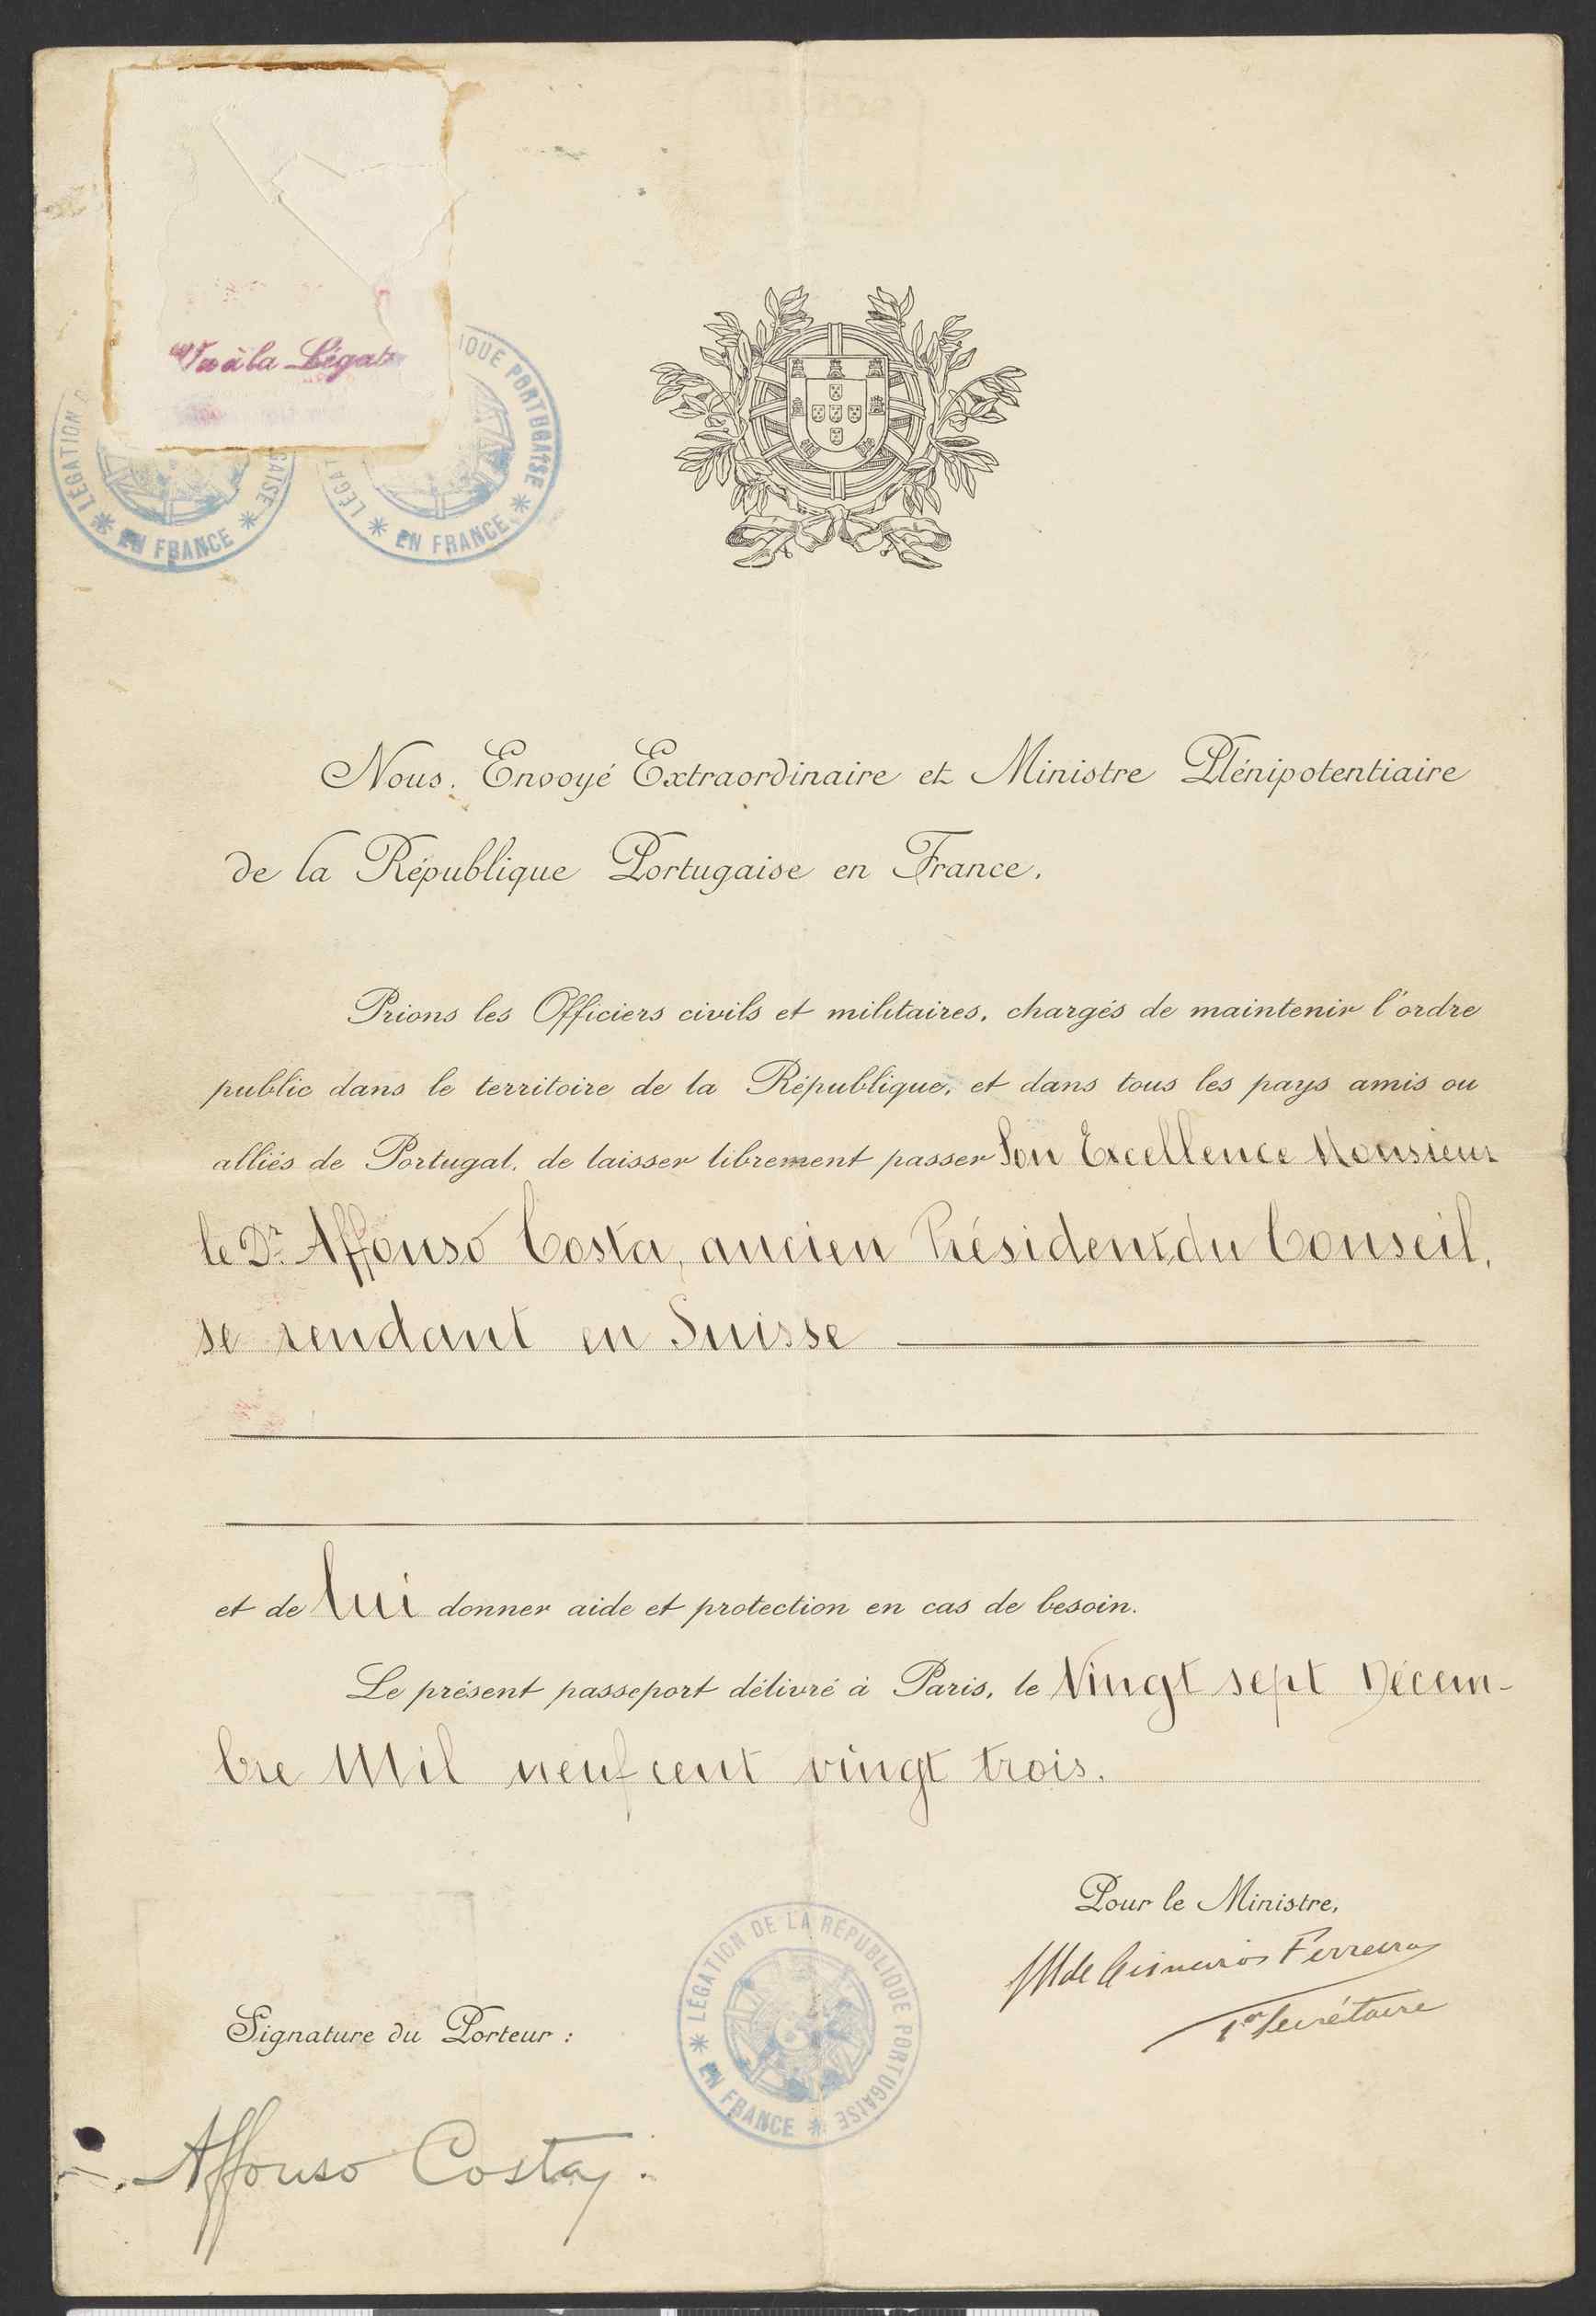 Vu à la Légat
LÉGATION GAISE * EN FRANCE *
LÉGAT IQUE PORTUGAISE * EN FRANCE *
Nous, Envoyé Extraordinaire et Ministre Plénipotentiaire
de la République Portugaise en France,
Prions les Officiers civils et militaires, chargés de maintenir l'ordre
public dans le territoire de la République, et dans tous les pays amis ou
alliés de Portugal, de laisser librement passer Son Excellence Monsieur
le Dr. Affonso Costa, ancien Président du Conseil,
se rendant en Suisse
et de lui donner aide et protection en cas de besoin.
Le présent passeport délivré à Paris, le Vingt sept Décem-
bre Mil neuf cent vingt trois.
Pour le Ministre,
Ferreira
1er Secrétaire
LÉGATION DE LA RÉPUBLIQUE PORTUGAISE * EN FRANCE *
Signature du Porteur :
Affonso Costa.